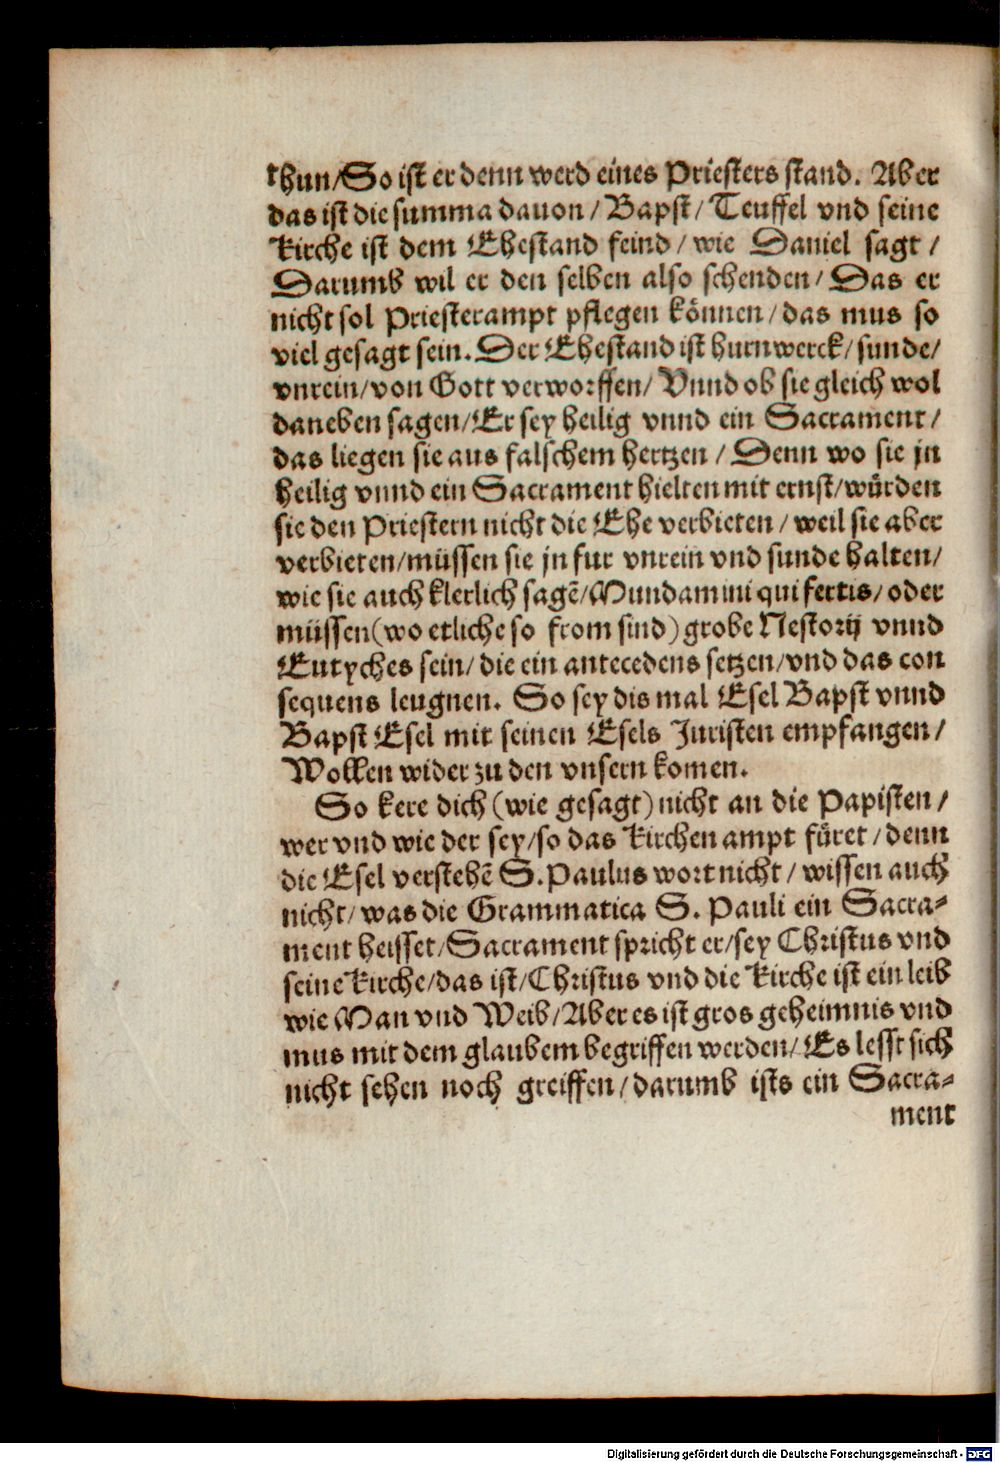 thun/So ist er denn werd eines Priesters stand. Aber
das ist die summa dauon / Bapst / Teuffel vnd seine
Kirche ist dem Ehestand feind / wie Daniel sagt /
Darumb wil er den selben also schenden / Das er
nicht sol Priesterampt pflegen können / das mus so
viel gesagt sein. Der Ehestand ist hurnwerck / sunde /
vnrein / von Gott verworffen / Vnnd ob sie gleich wol
daneben sagen / Er sey heilig vnnd ein Sacrament /
das liegen sie aus falschem hertzen / Denn wo sie jn
heilig vnnd ein Sacrament hielten mit ernst / würden
sie den Priestern nicht die Ehe verbieten / weil sie aber
verbieten / müssen sie jn fur vnrein vnd sunde halten /
wie sie auch klerlich sagẽ / Mundamini qui fertis / oder
müssen (wo etliche so from sind) grobe Nestorij vnnd
Eutyches sein / die ein antecedens setzen / vnd das con
sequens leugnen. So sey dis mal Esel Bapst vnnd
Bapst Esel mit seinen Esels Juristen empfangen /
Wollen wider zu den vnsern komen.
So kere dich (wie gesagt) nicht an die Papisten /
wer vnd wie der sey / so das Kirchen ampt füret / denn
die Esel verstehẽ S. Paulus wort nicht / wissen auch
nicht / was die Grammatica S. Pauli ein Sacra-
ment heisset / Sacrament spricht er / sey Christus vnd
seine Kirche / das ist / Christus vnd die Kirche ist ein leib
wie Man vnd Weib / Aber es ist gros geheimnis vnd
mus mit dem glaubem begriffen werden / Es lesst sich
nicht sehen noch greiffen / darumb ists ein Sacra-
ment
Digitalisierung gefördert durch die Deutsche Forschungsgemeinschaft - DFG